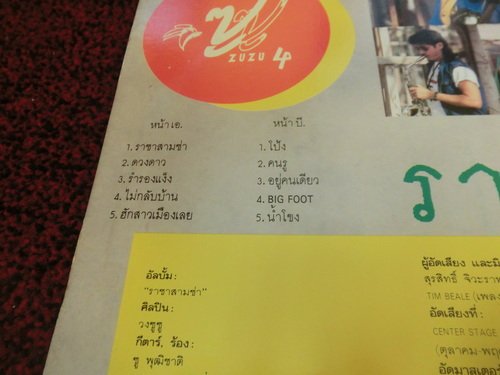 ซู
ZUZU 4
หน้าเอ.
1. ราชาสามช่า
2. ดวงดาว
3. รำรองแง็ง
4. ไม่กลับบ้าน
5. ฮักสาวเมืองเลย
หน้าบี.
1. โป้ง
2. คนรู
3. อยู่คนเดียว
4. BIG FOOT
5. น้ำโขง
รา
อัลบั้ม :
"ราชาสามช่า"
ศิลปิน :
วงซูซู
กีตาร์, ร้อง :
ซู พุฒิชาติ
ผู้อัดเสียง และมิ
สุรสิทธิ์ จิวะรา
TIM BEALE (เพลง
อัดเสียงที่ :
CENTER STAGE
(ตุลาคม-พฤ
อัดมาสเตอร